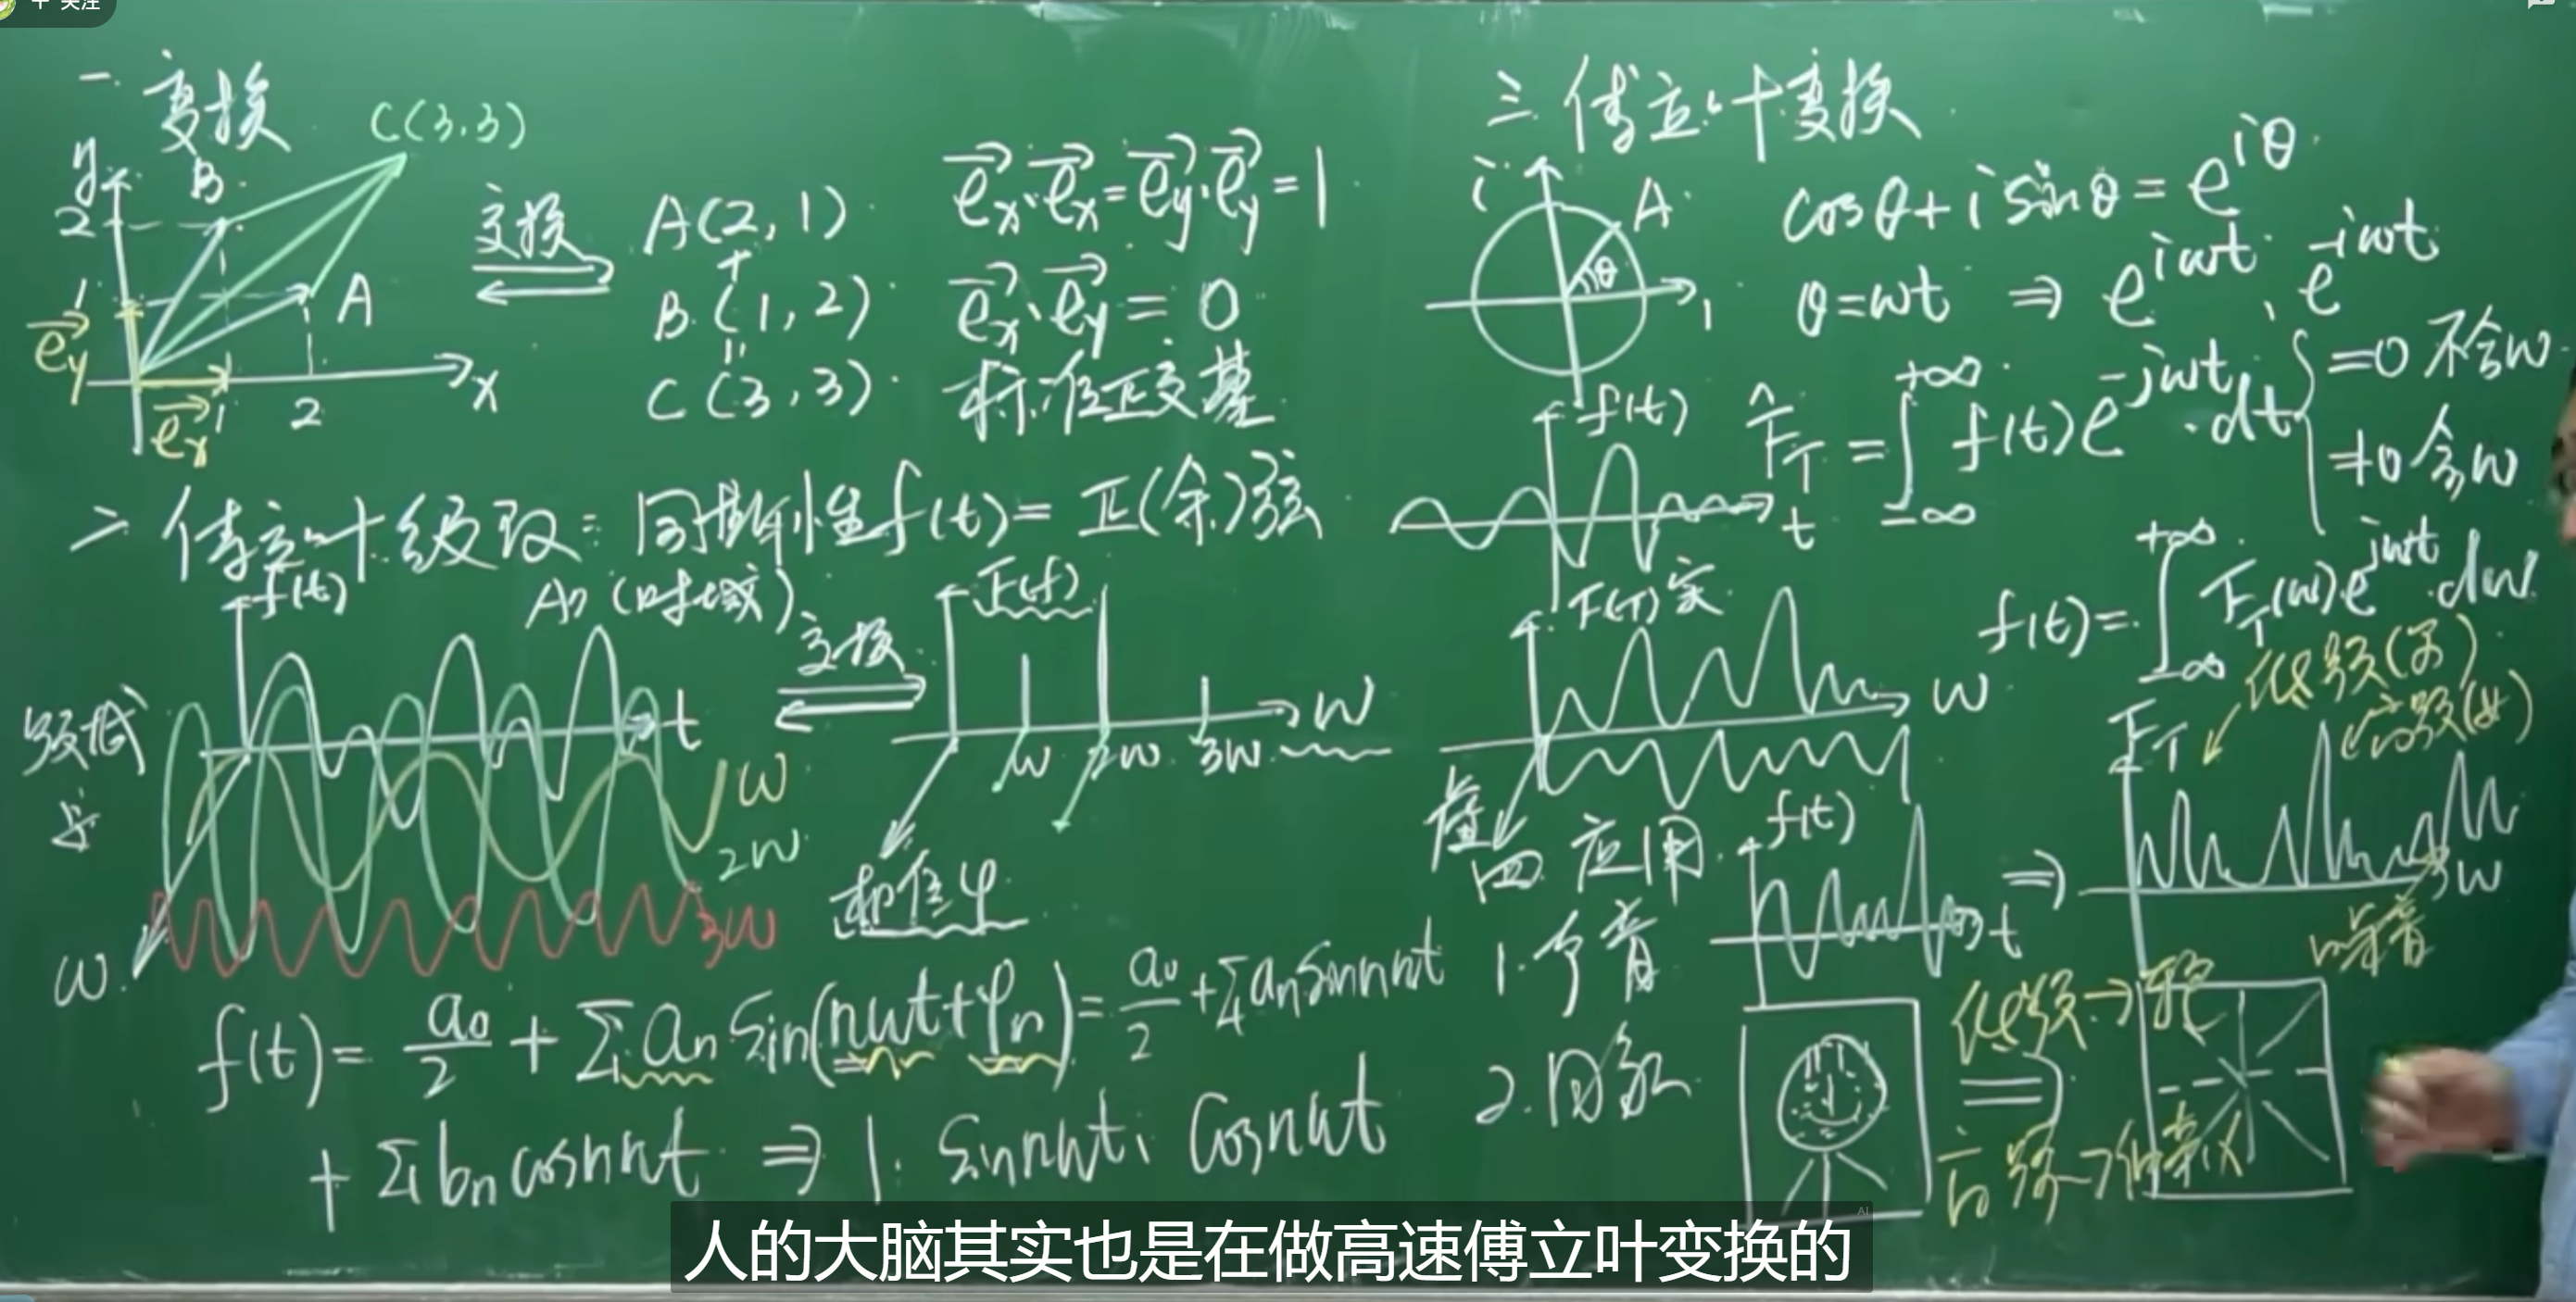 + 关注
一. 变换
C(3,3)
y
B
2
A
1
e⃗y
e⃗x
1
2
x
变换
A(2,1)
+
B(1,2)
=
C(3,3)
e⃗x·e⃗x=e⃗y·e⃗y=1
e⃗x·e⃗y=0
标准正交基
二 傅立叶级数:周期性f(t)=正(余)弦
f(t)
An (时域)
t
ω
2ω
3ω
ω
变换
F(f)
ω
2ω
3ω
ω
相位φ
f(t)= a0/2 + Σan sin(nωt+φn)= a0/2 +Σan sinnωt
+ Σbn cosnωt ⇒ 1. sinnωt、cosnωt
三 傅立叶变换
i
A
θ
1
cosθ+isinθ=e^iθ
θ=ωt ⇒ e^iωt, e^-iωt
f(t)
t
F_T=∫_-∞^+∞ f(t)e^-jωt·dt
=0 不含ω
≠0 含ω
F(T)实
ω
虚
f(t)=∫_-∞^+∞ F_T(ω)e^jωt·dω
四 应用
1.声音
f(t)
t
⇒
F_T
低频(男)
高频(女)
ω
噪音
2.图象
低频→
高频→细节
人的大脑其实也是在做高速傅立叶变换的
AI